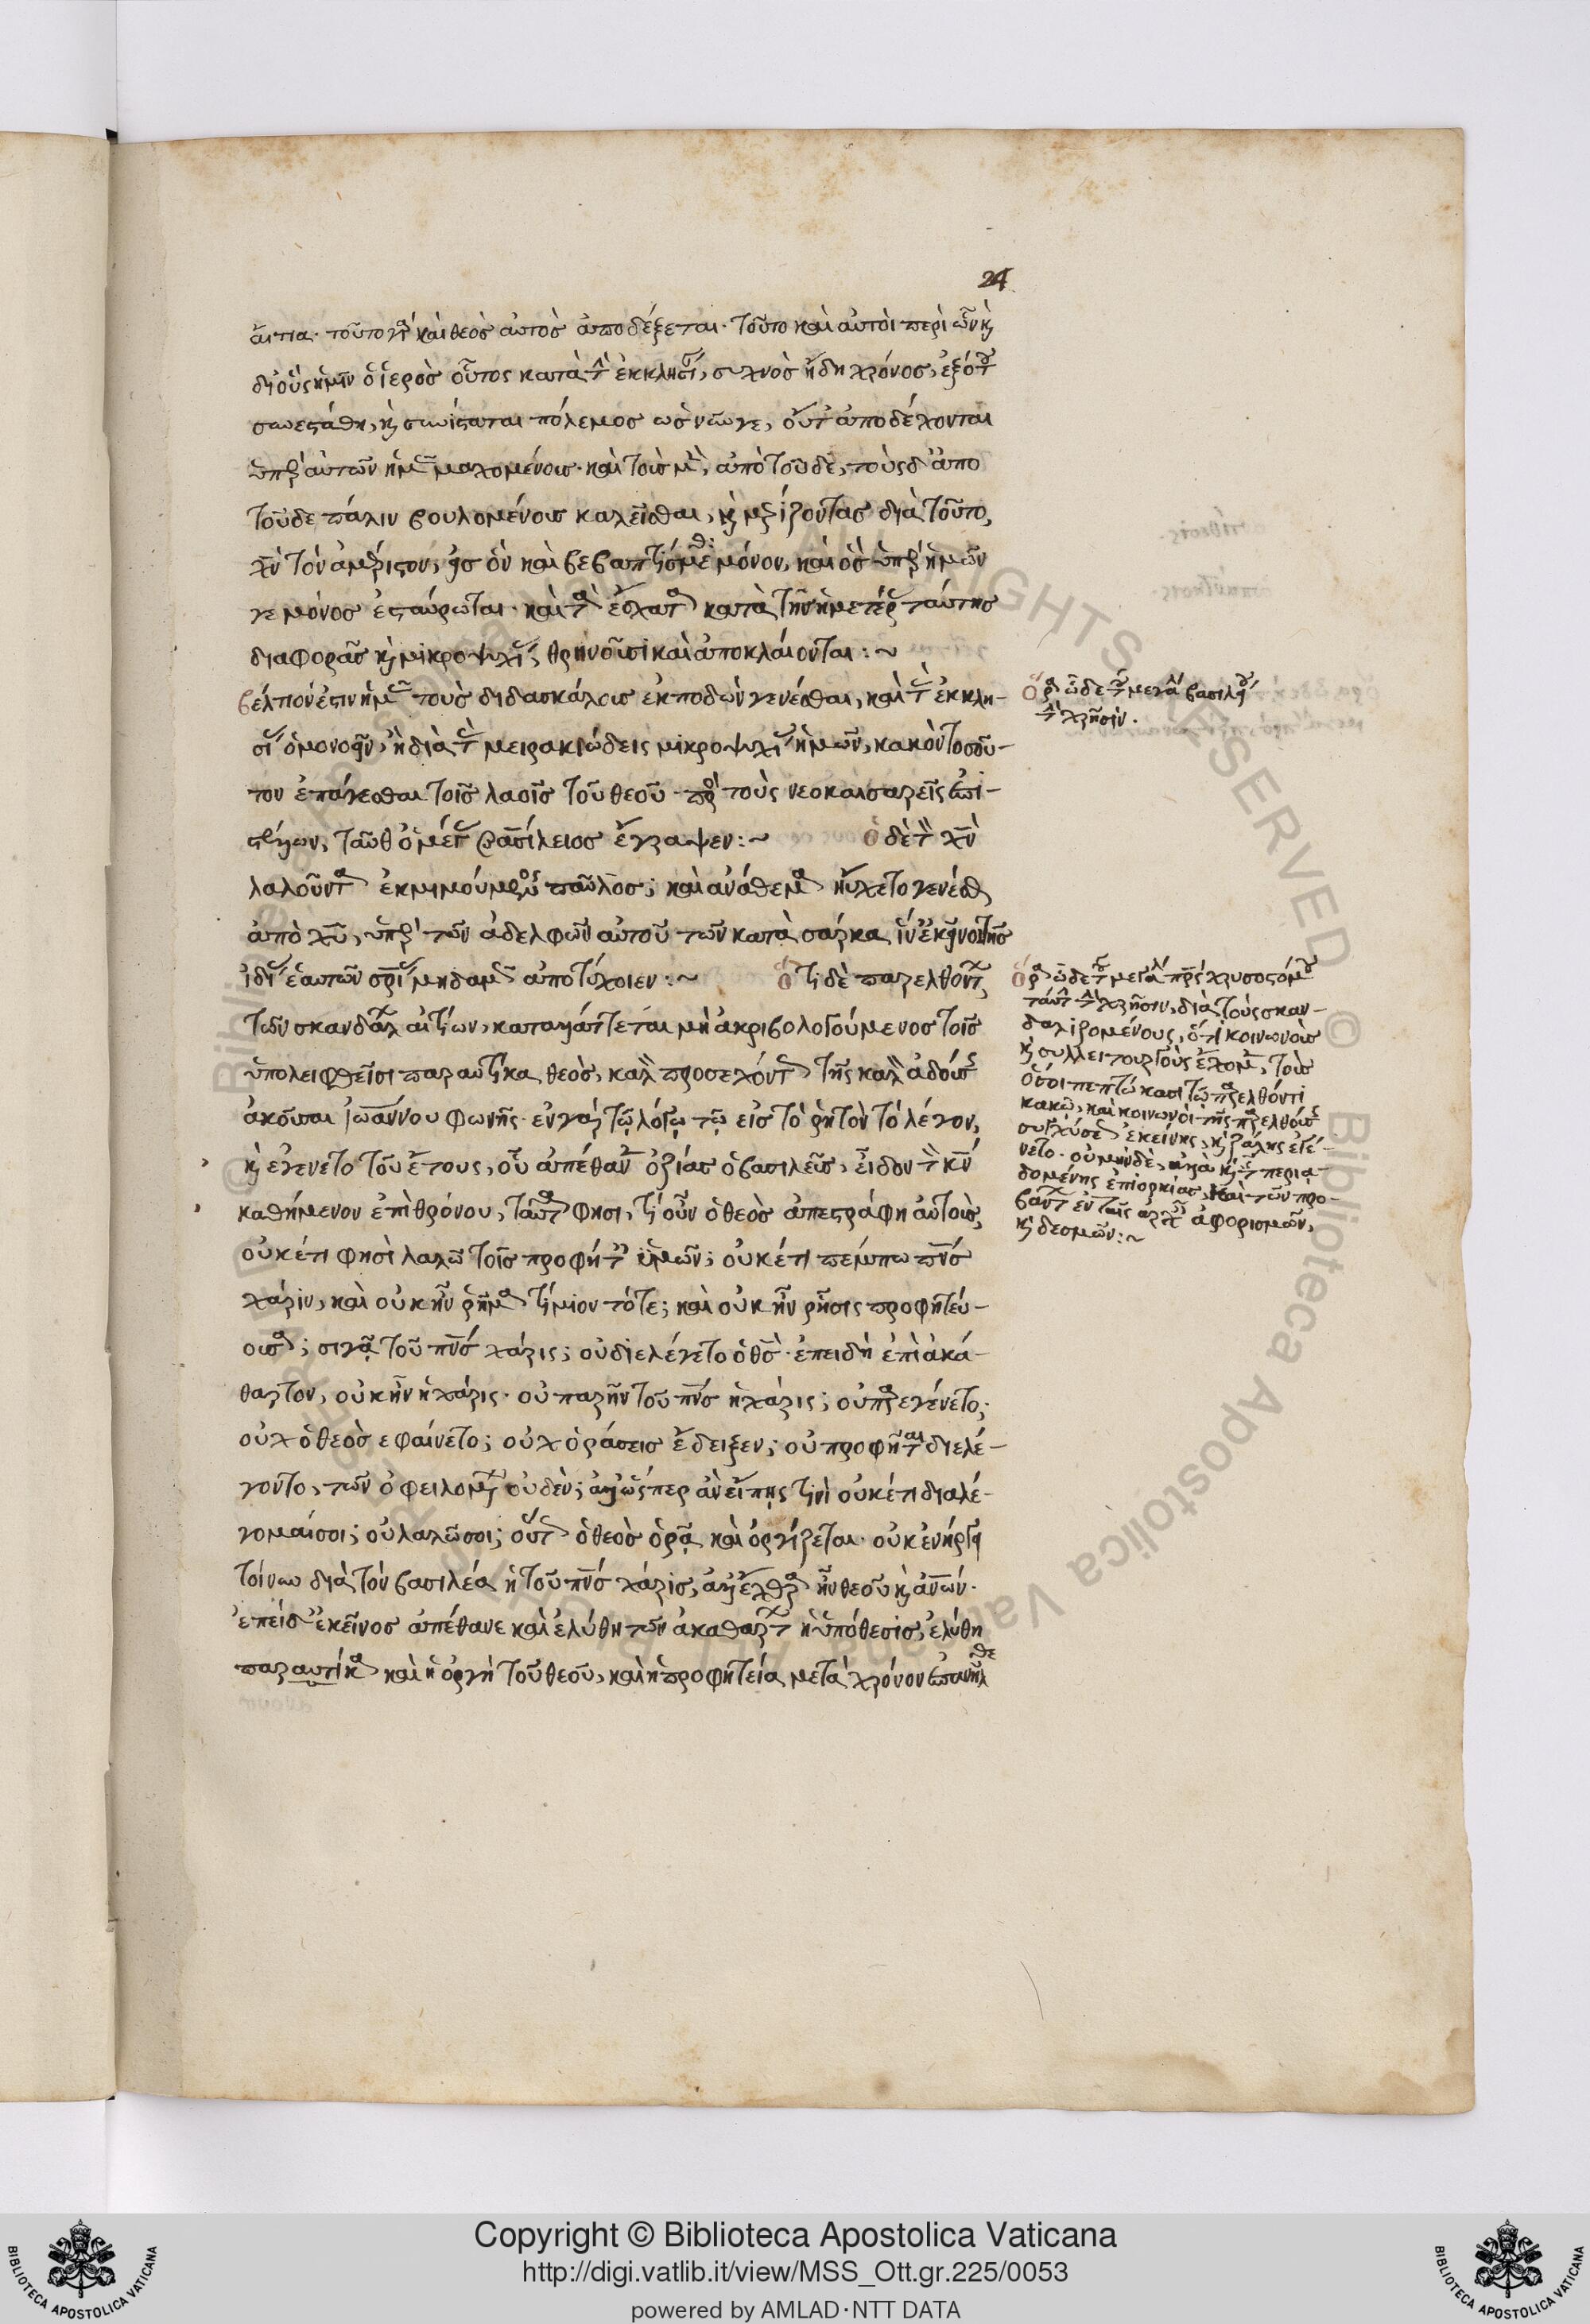 24
αἴτια· τοῦτο γὰρ καὶ θεὸς αὐτὸς ἀποδέξεται· τοῦτο καὶ αὐτοὶ περὶ ὧν κὶ
δι οὓς ἡμῖν ὁ ἱερὸς οὗτος κατὰ τ ἐκκλησί, συχνὸς ἤδη χρόνος, ἐξότ
συνεστάθη, κὶ συνίσταται πόλεμος ὡς νῦν γε, οὔτ ἀποδέχονται
ὑπὲρ αὐτῶν ἡμῖν μαχομένοις· καὶ τοῖς μὲν, ἀπὸ τοῦδε, τοὺς δ ἀπο
τοῦδε πάλιν βουλομένοις καλεῖσθαι, κὶ μερίζοντας διὰ τοῦτο,
χν τὸν ἀμέριστον, εἰς ὃν καὶ βεβαπτίσμεθα μόνον, καὶ ὃς ὑπὲρ ἡμῶν
γε μόνος ἐσταύρωται· καὶ τὰ ἔσχατα κατὰ τὴν ἡμετέρ ταύτης
διαφορᾶς κὶ μικροψυχί, θρηνοῦσι καὶ ἀποκλαίονται:~
βέλτιόν ἐστιν ἡμ τοὺς διδασκάλοις ἐκποδὼν γενέσθαι, καὶ τ ἐκκλη-
σί ὁμονοεῖν, ἢ διὰ τ μειρακιώδεις μικροψυχί ἡμῶν, κακὸν τοσοῦ-
τον ἐπάγεσθαι τοῖς λαοῖς τοῦ θεοῦ· πρὸ τοὺς νεοκαισαρεῖς ἐπι-
στέλλων, ταῦθ ὁ μέγ βασίλειος ἔγραψεν:~ ὁ δὲ τ χν
λαλοῦντα ἐκμιμούμενος παῦλος; καὶ ἀνάθεμα ηὔχετο γενέσθ
ἀπὸ χυ, ὑπὲρ τῶν ἀδελφῶν αὐτοῦ τῶν κατὰ σάρκα, ἵν ἐκεῖνοι τῆς
ἰδί ἑαυτῶν σρί μηδαμ ἀποτύχοιεν:~ ὅτι δὲ παρελθόντ
τῶν σκανδάλ αἰτίων, καταλλάττεται μὴ ἀκριβολογούμενος τοῖς
ὑπολειφθεῖσι παραυτίκα θεὸς, καλ προσεχόντ τῆς καλ ἀδούσ
ἀκοῦσαι ἰωάννου φωνῆς· ἐν γὰρ τῷ λόγῳ τῷ εἰς τὸ ῥητὸν τὸ λέγον,
κὶ ἐγένετο τοῦ ἔτους, οὗ ἀπέθαν ὀζίας ὁ βασιλεὺς, εἶδον τ κν
καθήμενον ἐπὶ θρόνου, ταῦτα φησι, τί οὖν ὁ θεὸς ἀπεστράφη αὐτοὺς,
οὐκέτι φησὶ λαλῶ τοῖς προφήτ ὑμῶν; οὐκέτι πέμπω πνς
χάριν, καὶ οὐκ ἦν ῥῆμα τίμιον τότε; καὶ οὐκ ἦν ῥῆσις προφητεύ-
ουσα; σιγᾷ τοῦ πνς χάρις; οὐ διελέγετο ὁ θς· ἐπειδὴ ἐπὶ ἀκά-
θαρτον, οὐκ ἦν ἡ χάρις· οὐ παρῆν τοῦ πνς ἡ χάρις; οὐ παρεγένετο;
οὐχ ὁ θεὸς εφαίνετο; οὐχ ὁράσεις ἔδειξεν; οὐ προφῆται διελέ-
γοντο, τῶν ὀφειλομέν οὐδὲν; ἀλλ ὥσπερ ἂν εἴπῃς τινὶ οὐκέτι διαλέ-
γομαί σοι; οὐ λαλῶ σοι; οὕτ ὁ θεὸς ὁρᾷ καὶ ὀργίζεται· οὐκ ἐνήργει
τοίνυν διὰ τὸν βασιλέα ἡ τοῦ πνς χάρις, ἀλλ ἔχθρα ἦν θεοῦ κὶ ἀνων·
ἐπεὶ δ ἐκεῖνος ἀπέθανε καὶ ἐλύθη τῶν ἀκαθάρτ ἡ ὑπόθεσις, ἐλύθη
παραυτίκα καὶ ἡ ὀργὴ τοῦ θεοῦ, καὶ ἡ προφητεία μετὰ χρόνον ἐπανῆλθε
ὅρα ὧδε τ μεγάλ βασιλεί
τ χρῆσιν.
ὅρα ὧδε τ μεγάλ πρς χρυσοστόμ
ταύτ τ χρῆσιν, διὰ τοὺς σκαν-
δαλιζομένους, ὅτι κοινωνοὺς
κὶ συλλειτουργοὺς ἔχομ, τοὺς
ὅσοι πεπτώκασι τῷ παρελθόντι
κακῷ, καὶ κοινωνοὶ τῆς παρελθούσ
συγχύσε ἐκείνης, κὶ ζάλης ἐγέ-
νετο· οὐ μὴν δὲ, ἀλλὰ κὶ τ περια-
δομένης ἐπιορκίας, καὶ τῶν προ-
βάντ ἐν ταῖς ἀρχ ἀφορισμῶν,
κὶ δεσμῶν:~
Copyright © Biblioteca Apostolica Vaticana
http://digi.vatlib.it/view/MSS_Ott.gr.225/0053
powered by AMLAD·NTT DATA
BIBLIOTECA APOSTOLICA VATICANA
BIBLIOTECA APOSTOLICA VATICANA